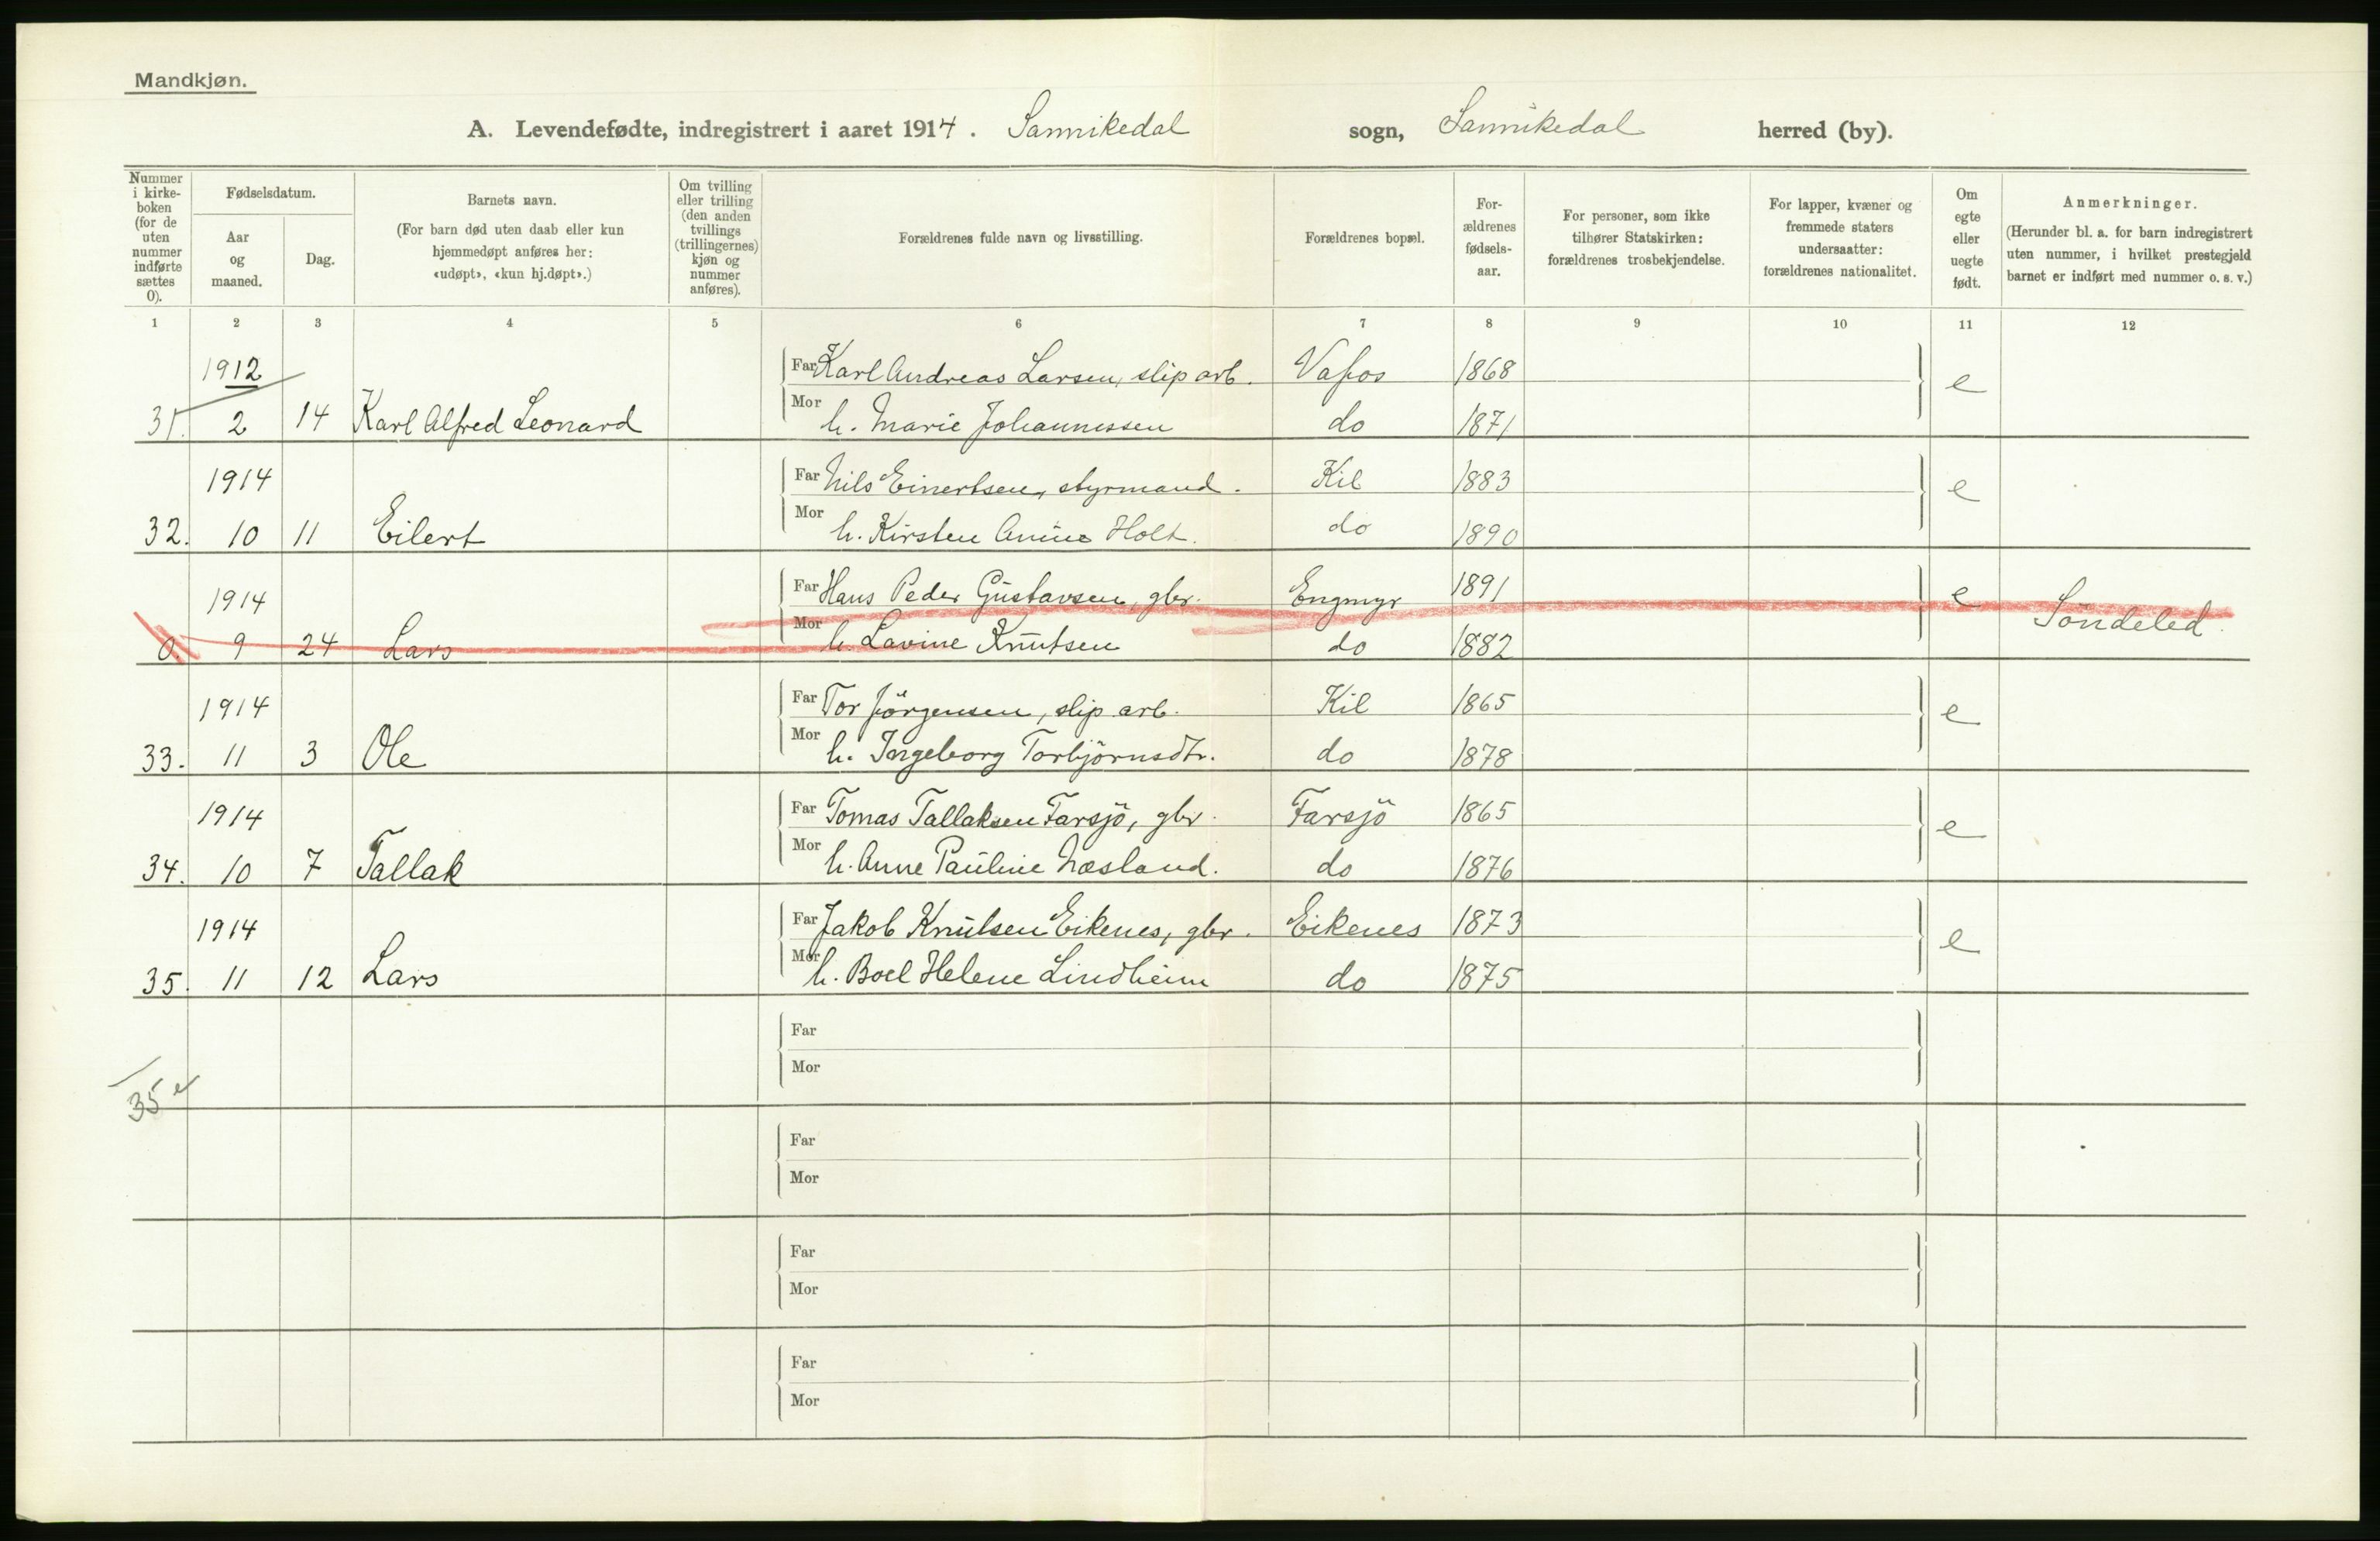 Mandkjøn.
A. Levendefødte, indregistrert i aaret 1914. Sannikedal sogn, Sannikedal herred (by).
Nummer i kirke-boken (for de uten nummer indførte sættes 0).
Fødselsdatum.
Aar og maaned.
Dag.
Barnets navn.
(For barn død uten daab eller kun hjemmedøpt anføres her: «udøpt», «kun hj.døpt».)
Om tvilling eller trilling (den anden tvillings (trillingernes) kjøn og nummer anføres).
Forældrenes fulde navn og livsstilling.
Forældrenes bopæl.
For-ældrenes fødsels-aar.
For personer, som ikke tilhører Statskirken: forældrenes trosbekjendelse.
For lapper, kvæner og fremmede staters undersaatter: forældrenes nationalitet.
Om egte eller uegte født.
Anmerkninger.
(Herunder bl. a. for barn indregistrert uten nummer, i hvilket prestegjeld barnet er indført med nummer o. s. v.)
1 2 3 4 5 6 7 8 9 10 11 12
1912 Far Karl Andreas Larsen, slip arb. Vafos 1868 e
31. 2 14 Karl Alfred Leonard Mor h. Marie Johannessen do 1871
1914 Far Nils Einertsen, styrmand. Kil 1883 e
32. 10 11 Eilert Mor h. Kirsten Anine Holt. do 1890
1914 Far Hans Peder Gustavsen, gbr. Engmyr 1891 e Söndeled.
0. 9 24 Lars Mor h. Lavine Knutsen do 1882
1914 Far Tor Jörgensen, slip arb. Kil 1865 e
33. 11 3 Ole Mor h. Ingeborg Torbjörnsdtr. do 1878
1914 Far Tomas Tallaksen Farsjö, gbr. Farsjö 1865 e
34. 10 7 Tallak Mor h. Anne Pauline Næsland. do 1876
1914 Far Jakob Knutsen Eikenes, gbr. Eikenes 1873 e
35. 11 12 Lars Mor h. Boel Helene Lindheim do 1875
Far
Mor
35
Far
Mor
Far
Mor
Far
Mor